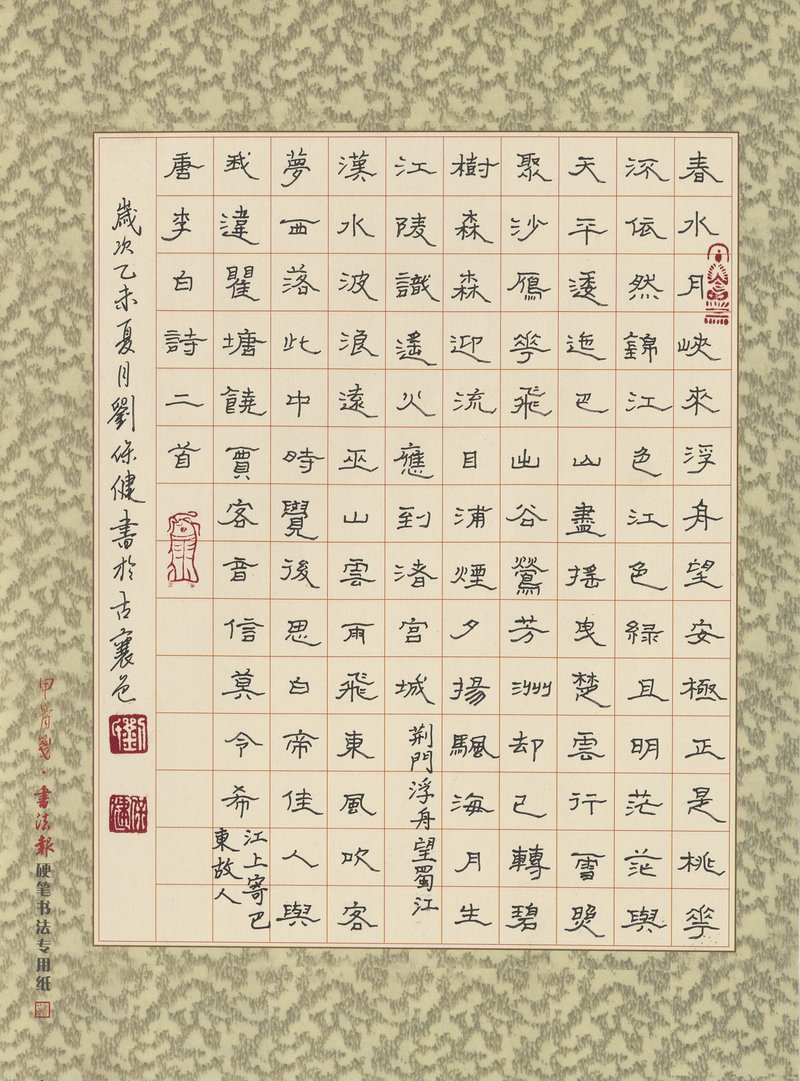 春水月峽來浮舟望安極正是桃花
流依然錦江色江色綠且明茫茫與
天平逶迤巴山盡搖曳楚雲行雪照
聚沙鴈花飛出谷鶯芳洲却已轉碧
樹森森迎流目浦煙夕揚颿海月生
江陵識遙火應到渚宮城
荆門浮舟望蜀江
漢水波浪遠巫山雲雨飛東風吹客
夢西落此中時覺後思白帝佳人與
我違瞿塘饒賈客音信莫令希
江上寄巴
東故人
唐李白詩二首
歲次乙未夏月劉保健書於古襄邑
甲骨箋·書法報硬笔书法专用纸